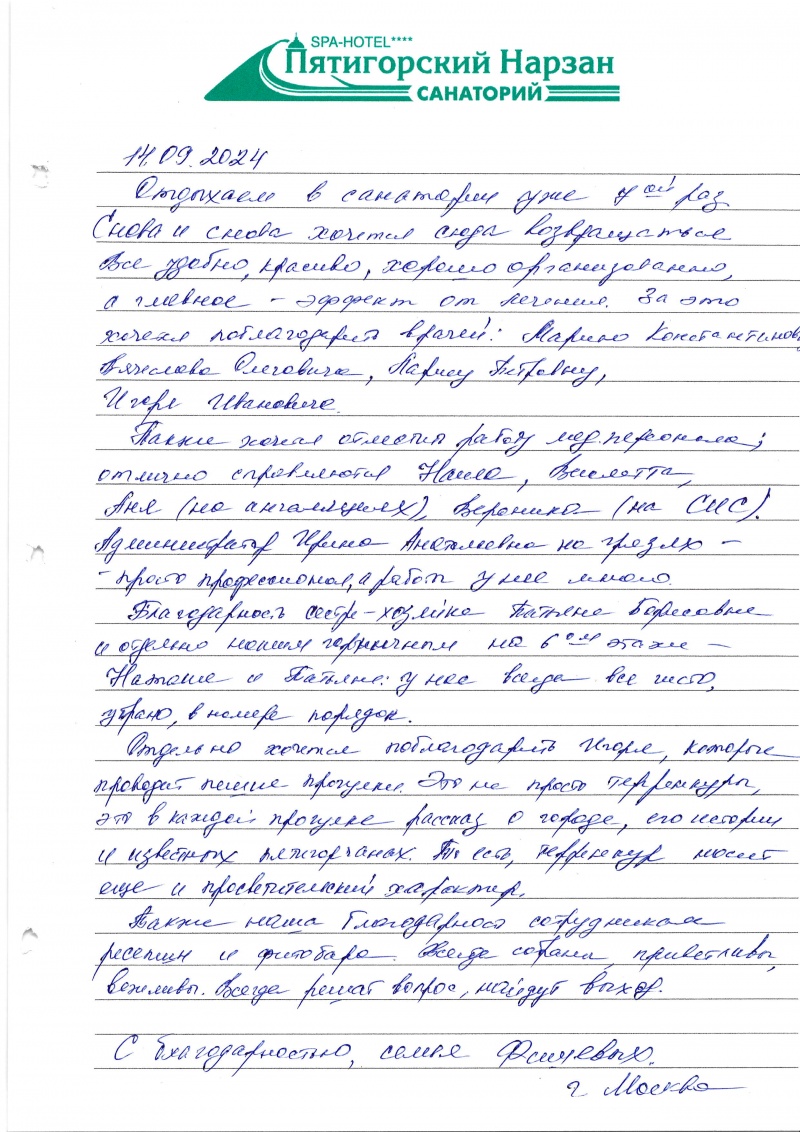 SPA-HOTEL****
Пятигорский Нарзан
САНАТОРИЙ
14.09.2024
Отдыхаем в санатории уже 4ой раз
Снова и снова хочется сюда возвращаться
Все удобно, красиво, хорошо организованно,
а главное – эффект от лечения. За это
хочется поблагодарить врачей: Марину Константиновну,
Вячеслава Олеговича, Ларису Петровну,
Игоря Ивановича.
Также хочется отметить работу мед.персонала;
отлично справляются Наила, Виолетта,
Аня (на ингаляциях), Вероника (на СМС).
Администратор Ирина Анатольевна на грязях –
– просто профессионал, а работы у нее много.
Благодарность сестре-хозяйке Татьяне Борисовне
и отдельно нашим горничным на 6ом этаже –
Наташе и Татьяне: у нас всегда все чисто,
убрано, в номере порядок.
Отдельно хочется поблагодарить Игоря, который
проводит пешие прогулки. Это не просто терренкуры,
это в каждой прогулке рассказ о городе, его истории
и известных пятигорчанах. То есть, терренкур носит
еще и просветительский характер.
Также наша благодарность сотрудникам
ресепшн и фитобара. Всегда собраны, приветливы,
вежливы. Всегда решат вопрос, найдут выход.
С благодарностью, семья
г. Москва